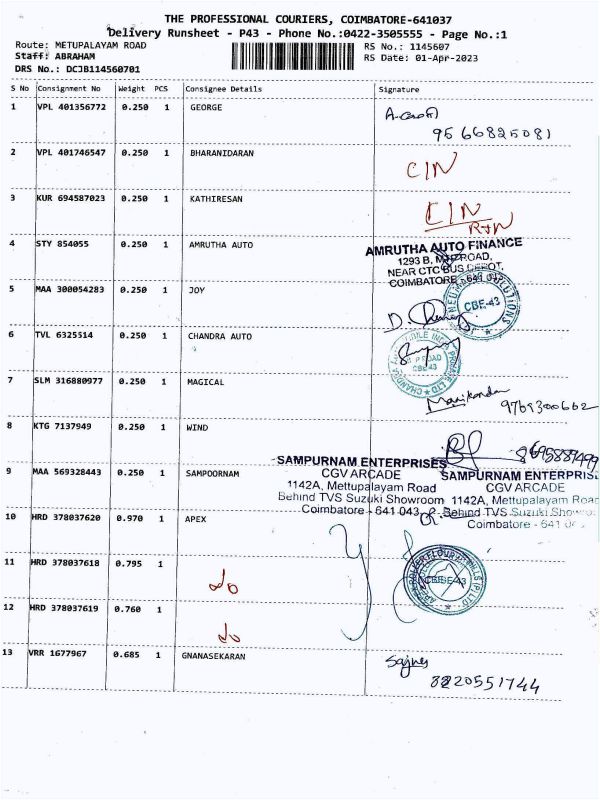 THE PROFESSIONAL COURIERS, COIMBATORE-641037
Delivery Runsheet - P43 - Phone No.:0422-3505555 - Page No.:1
Route: METUPALAYAM ROAD
RS No.: 1145607
Staff: ABRAHAM
RS Date: 01-Apr-2023
DRS No.: DCJB114560701
S No Consignment No Weight PCS Consignee Details Signature
1 VPL 401356772 0.250 1 GEORGE
9566825081
2 VPL 401746547 0.250 1 BHARANIDARAN CIN
3 KUR 694587023 0.250 1 KATHIRESAN CIN
RTN
4 STY 854055 0.250 1 AMRUTHA AUTO
AMRUTHA AUTO FINANCE
1293 B, MTP ROAD,
NEAR CTC BUS DEPOT,
COIMBATORE - 641 043
5 MAA 300054283 0.250 1 JOY
CBE-43
6 TVL 6325514 0.250 1 CHANDRA AUTO
CBE-43
7 SLM 316880977 0.250 1 MAGICAL
Manikandan
8 KTG 7137949 0.250 1 WIND
9 MAA 569328443 0.250 1 SAMPOORNAM
SAMPURNAM ENTERPRISES
CGV ARCADE
1142A, Mettupalayam Road
Behind TVS Suzuki Showroom
Coimbatore - 641 043
SAMPURNAM ENTERPRISE
CGV ARCADE
1142A, Mettupalayam Road
Behind TVS Suzuki Showroo
Coimbatore - 641 0
10 HRD 378037620 0.970 1 APEX
11 HRD 378037618 0.795 1 do
CBE-43
12 HRD 378037619 0.760 1 do
13 VRR 1677967 0.685 1 GNANASEKARAN
8220551744